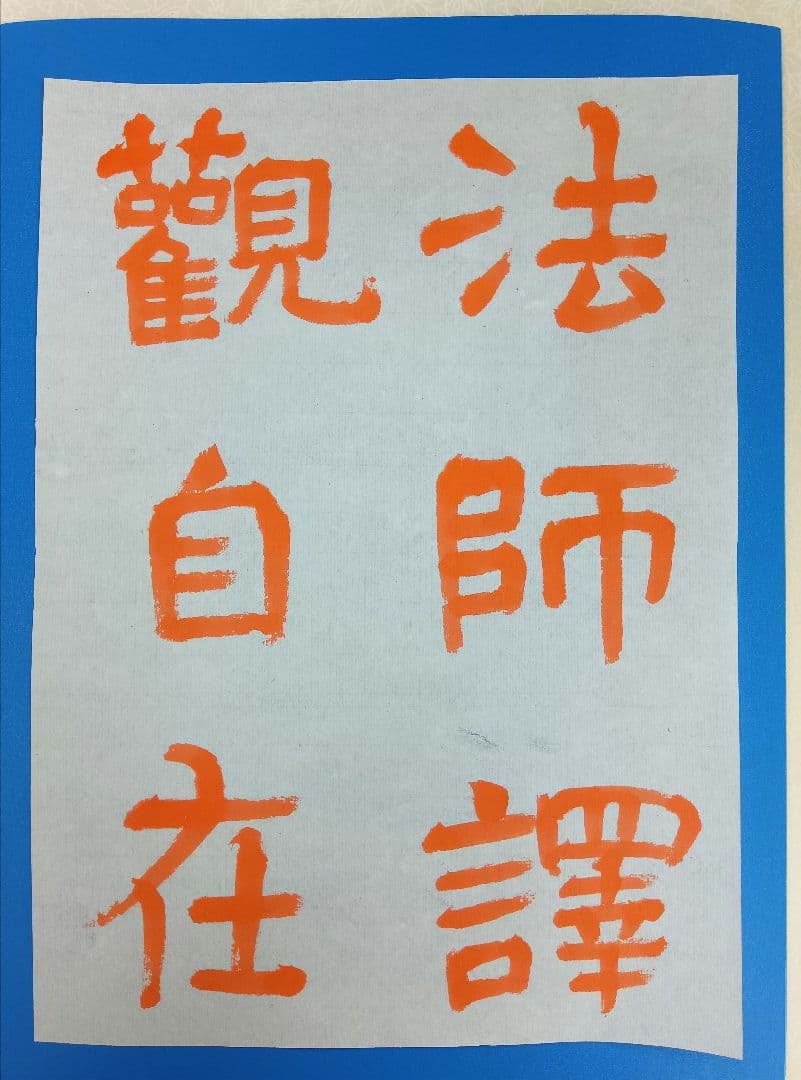 法師譯
觀自在